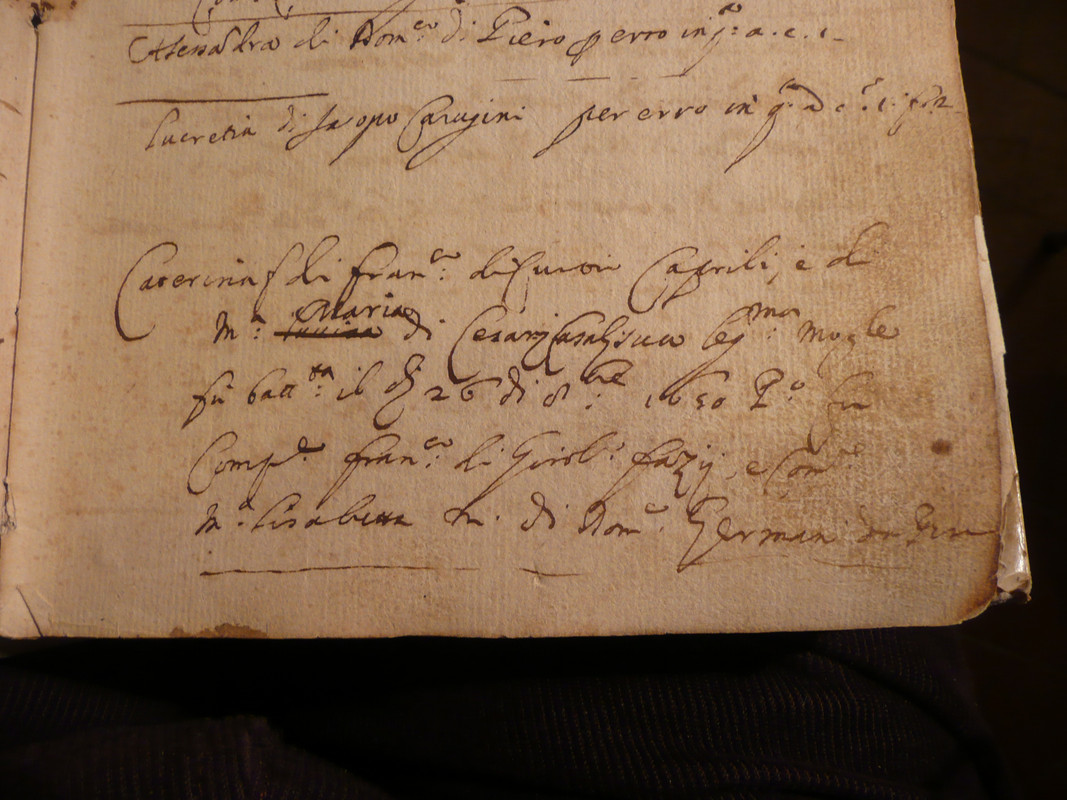 Alessandra di Dom.co di Piero per erro in q.o a. c. 1
Lucretia di Jacopo Carugini per erro in q.o a c. 1.
Caterina f di Fran.co di Caprili, e di
M.a Maria di Cesar sua leg.ma mogle
fù batt.ta il dì 26 di 8.bre 1650 P.o fu
Comp.e Fran.co di Girol.o Fazij, e Com.e
M.a Lisabetta M. di Dom.co Germani